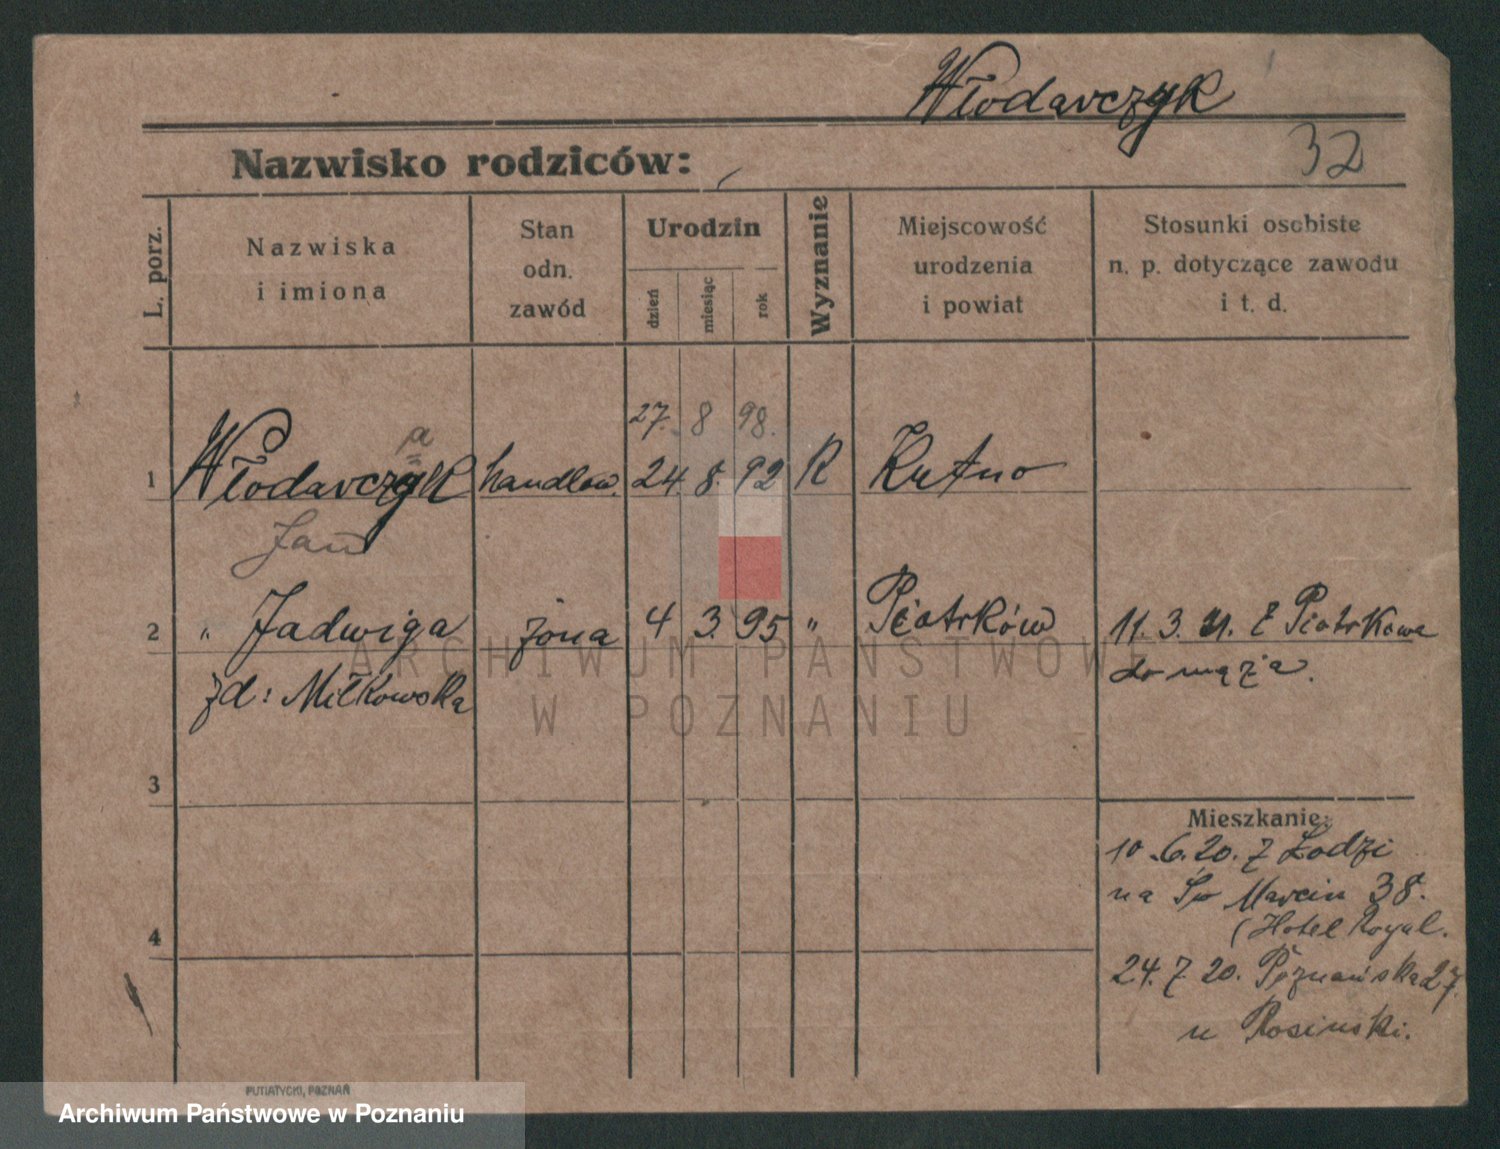 Włodarczyk
32
Nazwisko rodziców:
L. porz.
Nazwiska
i imiona
Stan
odn.
zawód
Urodzin
dzień
miesiąc
rok
Wyznanie
Miejscowość
urodzenia
i powiat
Stosunki osobiste
n. p. dotyczące zawodu
i t. d.
27. 8 98.
a
1 Włodarczyk handlow. 24. 8. 92 R Kutno
Jan
2 " Jadwiga żona 4 3. 95 " Piotrków 11. 3. 21. z Piotrkowa
do męża.
zd: Miłkowska
3
Mieszkanie:
10.6.20. z Łodzi
na Św Marcin 38.
(Hotel Royal.
4
24.7 20. Poznańska 27.
u Rosinski.
PUTIATYCKI, POZNAŃ
ARCHIWUM PAŃSTWOWE
W POZNANIU
Archiwum Państwowe w Poznaniu